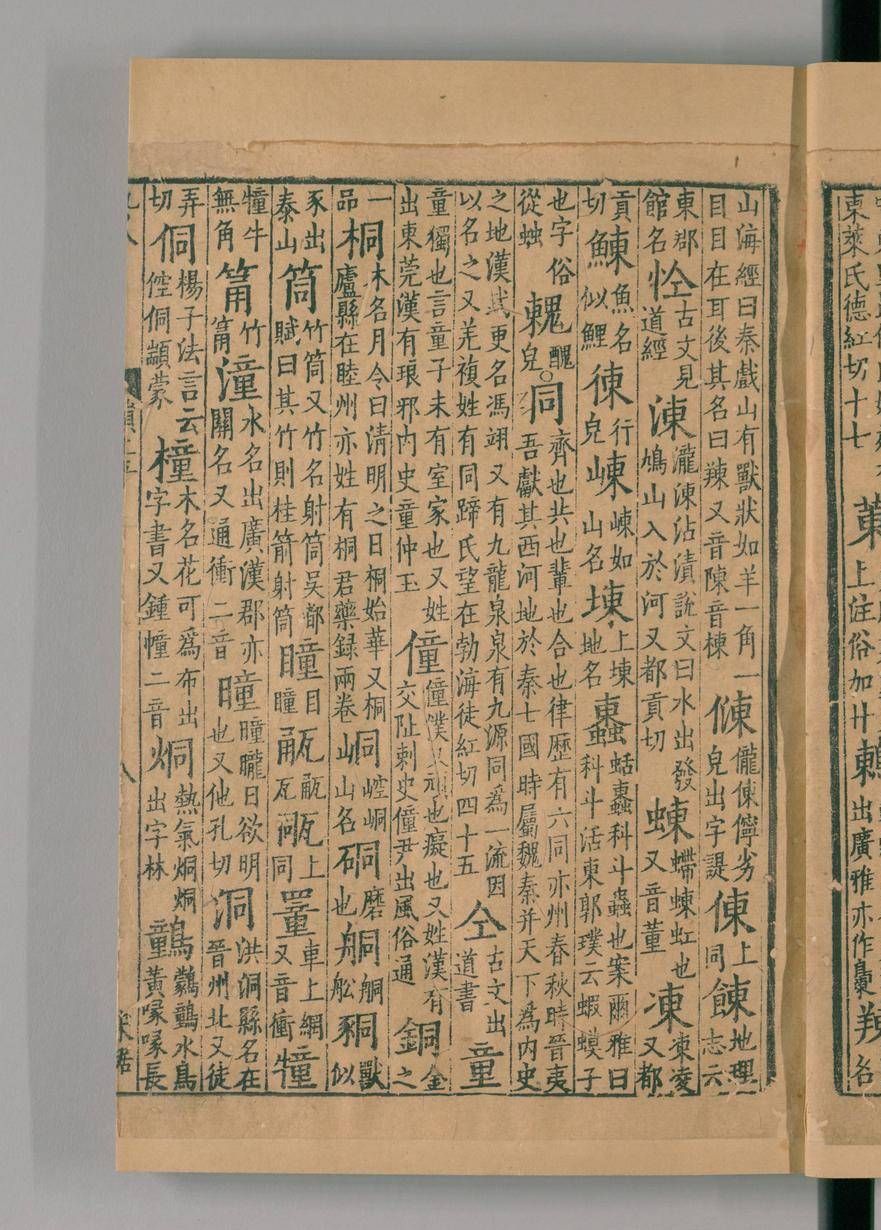 東萊氏德紅切十七 菄 上注俗加艹 鶇 出廣雅亦作 䍶 名
山海經曰秦戲山有獸狀如羊一角一目目在耳後其名曰䍶又音陳音棟 倲 儱倲儜劣皃出字諟 上同 餗 地理志云
東郡館名 古文見道經 涷 瀧涷沾漬說文曰水出發鳩山入於河又都貢切 蝀 螮蝀虹也又音董 凍 凍凌又都
貢切 鯟 魚名似鯉 𢔅 行皃 崠 崠如山名 埬 上埬地名 𧓕 蛞𧓕科斗蟲也案爾雅曰科斗活東郭璞云蝦蟆子
也字俗從䖵 䰤 醜皃○同 齊也共也輩也合也律歷有六同亦州春秋時晉夷吾獻其西河地於秦七國時屬魏秦并天下爲內史
之地漢武更名馮翊又有九龍泉泉有九源同爲一流因以名之又羌複姓有同蹄氏望在勃海徒紅切四十五 仝 古文出道書 童
童獨也言童子未有室家也又姓出東莞漢有琅邪內史童仲玉 僮 僮僕又頑也癡也又姓漢有交阯刺史僮尹出風俗通 銅 金之
一品 桐 木名月令曰清明之日桐始華又桐廬縣在睦州亦姓有桐君藥錄兩卷 峒 崆峒山名 硐 磨也 舸 舩 獸似
豕出泰山 筒 竹筒又竹名射筒吳都賦曰其竹則桂箭射筒 瞳 目瞳 㼧 瓦 上同 罿 車上網又音衝 犝
犝牛無角 筩 竹筩 潼 水名出廣漢郡亦關名又通衝二音 曈 曈曨日欲明也又他孔切 洞 洪洞縣名在晉州北又徒
弄切 侗 楊子法言云倥侗顓蒙 橦 木名花可爲布出字書又鍾幢二音 烔 熱氣烔烔出字林 水鳥黃喙喙長